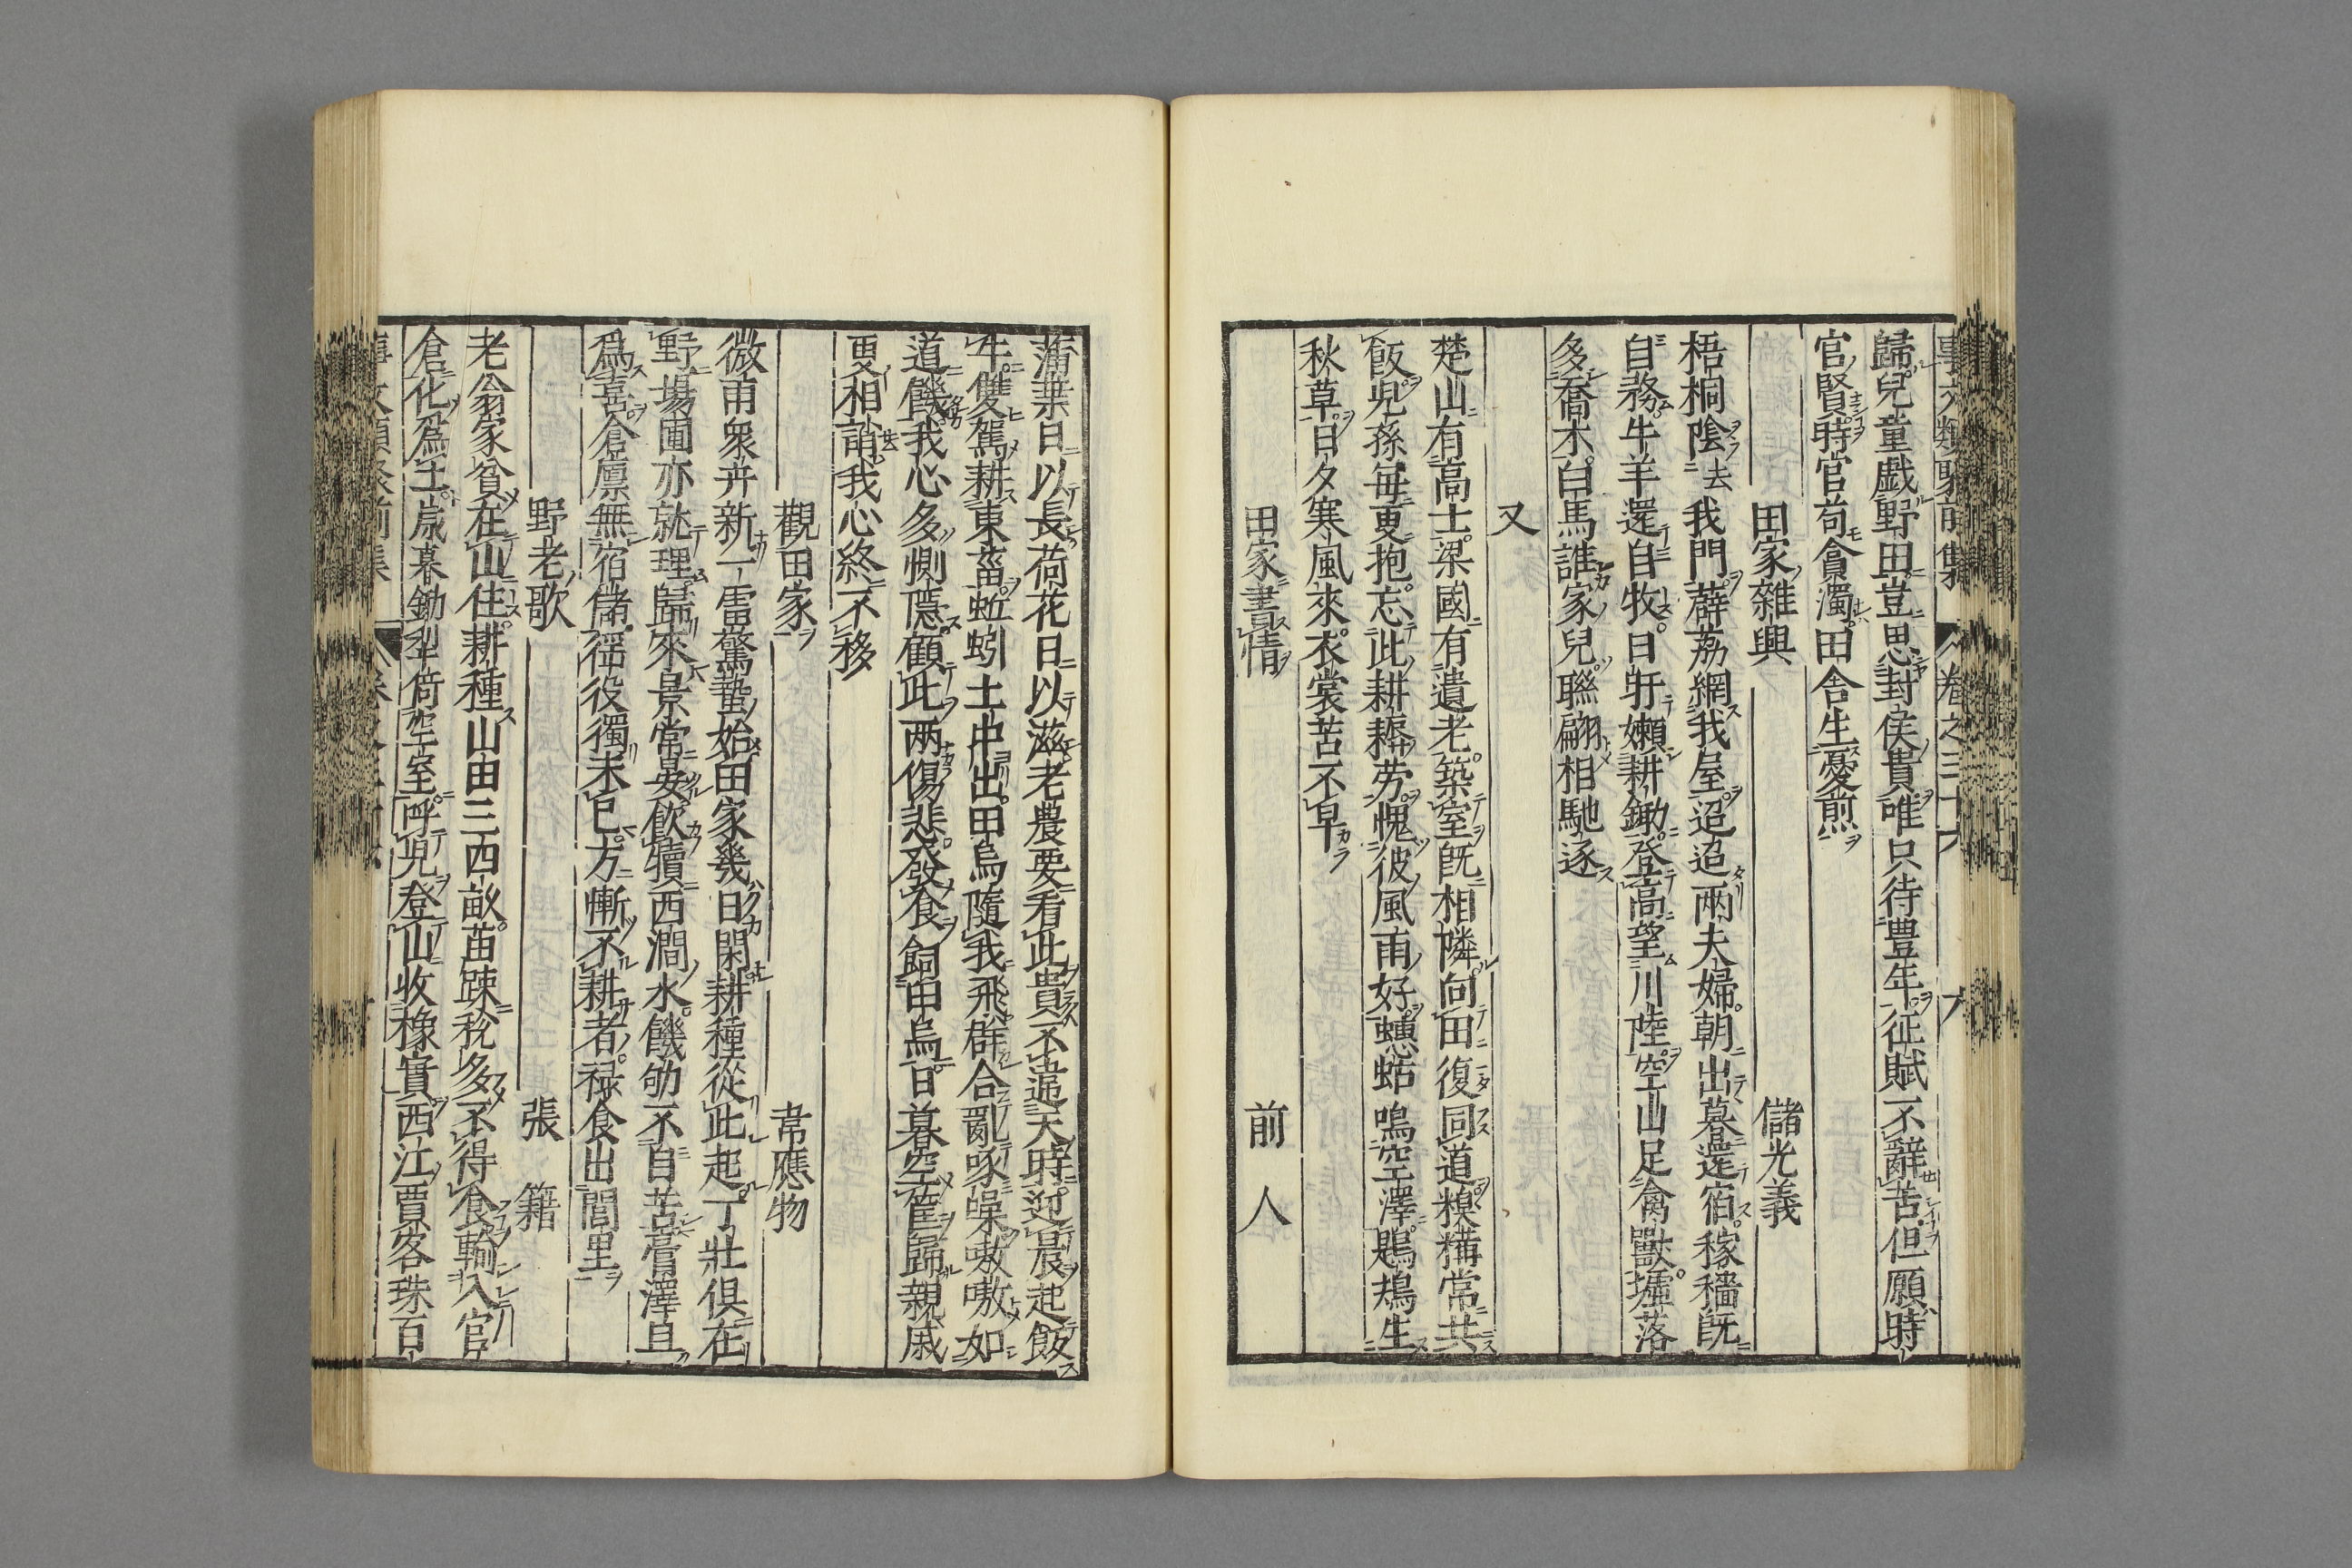 事文類聚前集 卷之三十六 六
歸兒童戯野田豈思封侯貴唯只待豊年征賦不辭苦但願時
官賢時官苟貪濁田舎生憂煎
田家雜興 儲光義
梧桐陰去我門薜荔網我屋迢迢兩夫婦朝出暮還宿稼穡既
自務牛羊還自牧日旰嬾耕鋤登高望川陸空山足禽獸墟落
多喬木白馬誰家兒聯翩相馳逐
又
楚山有高士梁國有遺老築室既相隣向田復同道糗糒常共
飯兒孫毎更抱忘此耕耨労愧彼風雨好蟪蛄鳴空澤鶗鴂生
秋草日夕寒風來衣裳苦不早
田家書情 前人
蒲葉日以長荷花日以滋老農要看此貴不違天時迎晨起飯
牛雙駕耕東菑蚯蚓土中出田烏隨我飛群合亂啄噪嗷嗷如
道饑我心多惻隠顧此両傷悲發食飼田烏日暮空筐歸親戚
更相誚我心終不移
觀田家 韋應物
微雨衆卉新一雷驚蟄始田家幾日閑耕種從此起丁壯倶在
野場圃亦就理歸來景常晏飲犢西澗水饑劬不自苦膏澤且
爲喜倉廪無宿儲徭役獨未已方慚不耕者禄食出閭里
野老歌 張籍
老翁家貧在山住耕種山田三四畝苗踈税多不得食輸入官
倉化爲土歳暮鋤犁倚空室呼兒登山收橡實西江賈客珠百